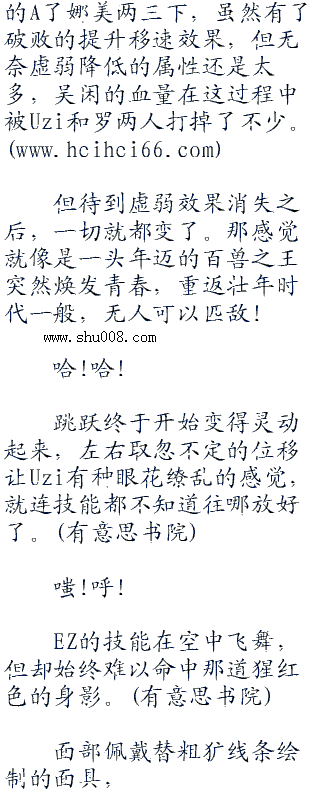 的A了娜美两三下，虽然有了
破败的提升移速效果，但无
奈虚弱降低的属性还是太
多，吴闲的血量在这过程中
被Uzi和罗两人打掉了不少。
(www.hcihci66.com)
但待到虚弱效果消失之
后，一切就都变了。那感觉
就像是一头年迈的百兽之王
突然焕发青春，重返壮年时
代一般，无人可以匹敌!
www.shu008.com
哈!哈!
跳跃终于开始变得灵动
起来，左右取忽不定的位移
让Uzi有种眼花缭乱的感觉，
就连技能都不知道往哪放好
了。(有意思书院)
嗤!呼!
EZ的技能在空中飞舞，
但却始终难以命中那道猩红
色的身影。(有意思书院)
面部佩戴替粗犷线条绘
制的面具，